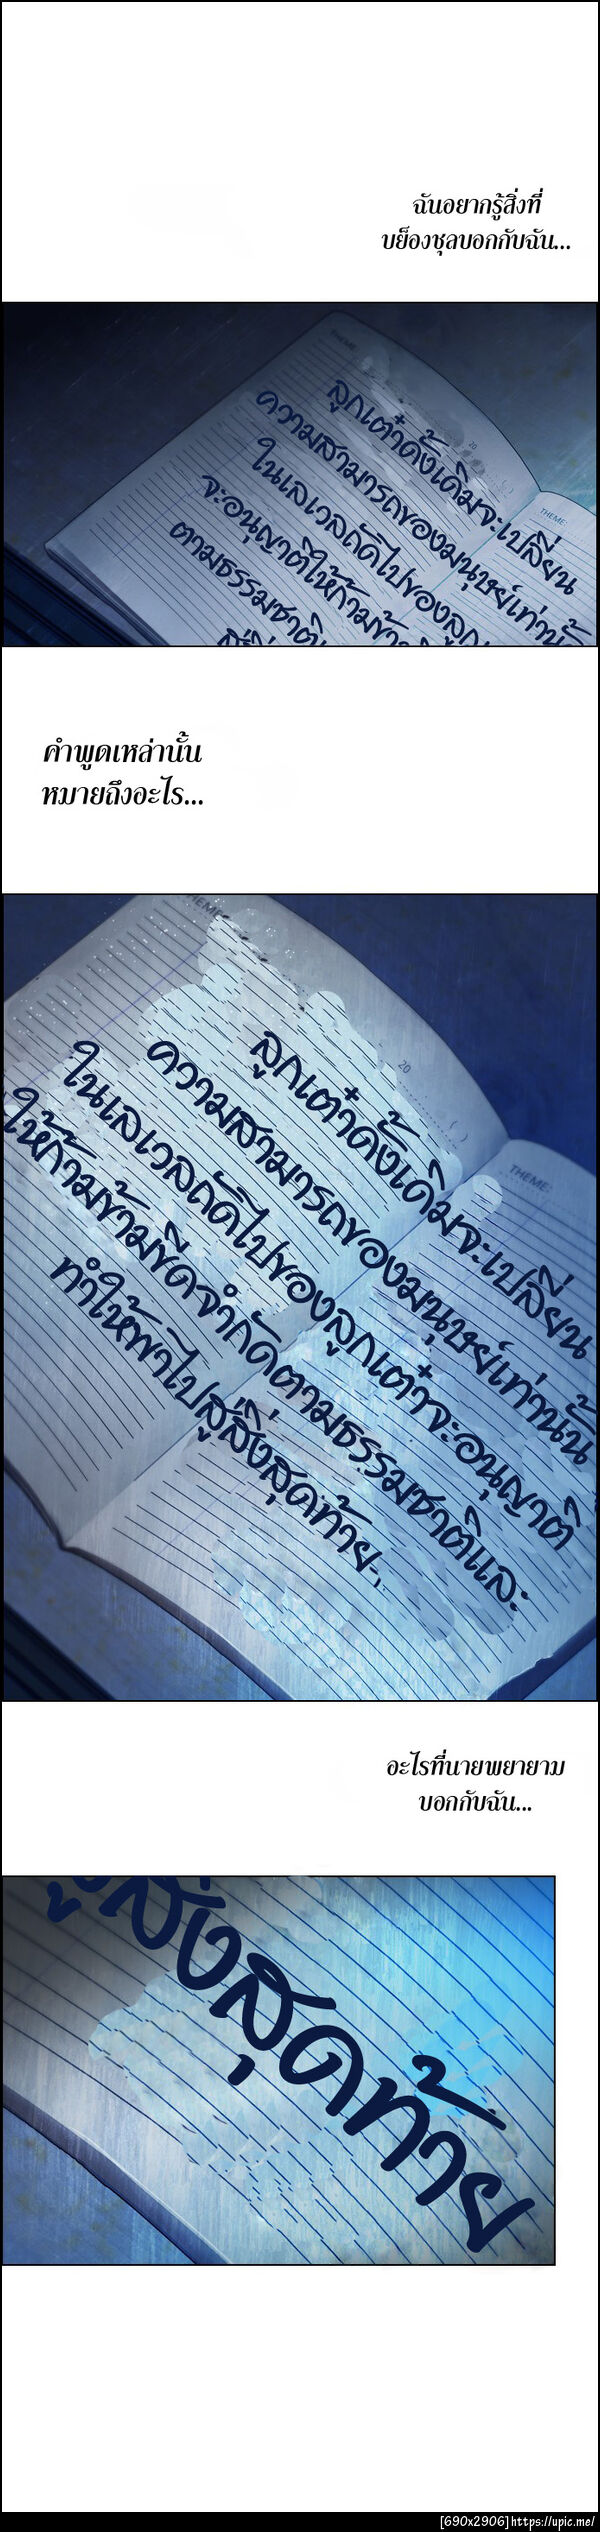 ฉันอยากรู้สิ่งที่
บย็องชุลบอกกับฉัน...
THEME:
20
( )
THEME:
ลูกเต๋าดั้งเดิมจะเปลี่ยน
ความสามารถของมนุษย์เท่านั้น
ในเลเวลถัดไปของลูก
จะอนุญาติให้ก้ามข้า
ตามธรรมชาติ
คำพูดเหล่านั้น
หมายถึงอะไร...
THEME
20
( )
THEME:
ลูกเต๋าดั้งเดิมจะเปลี่ยน
ความสามารถของมนุษย์เท่านั้น
ในเลเวลถัดไปของลูกเต๋าจะอนุญาติ
ให้ก้ามข้ามขีดจำกัดตามธรรมชาติและ
ทำให้พาไปสู่สิ่งสุดท้าย.
อะไรที่นายพยายาม
บอกกับฉัน...
สู่สิ่งสุดท้าย
[690x2906]https://upic.me/